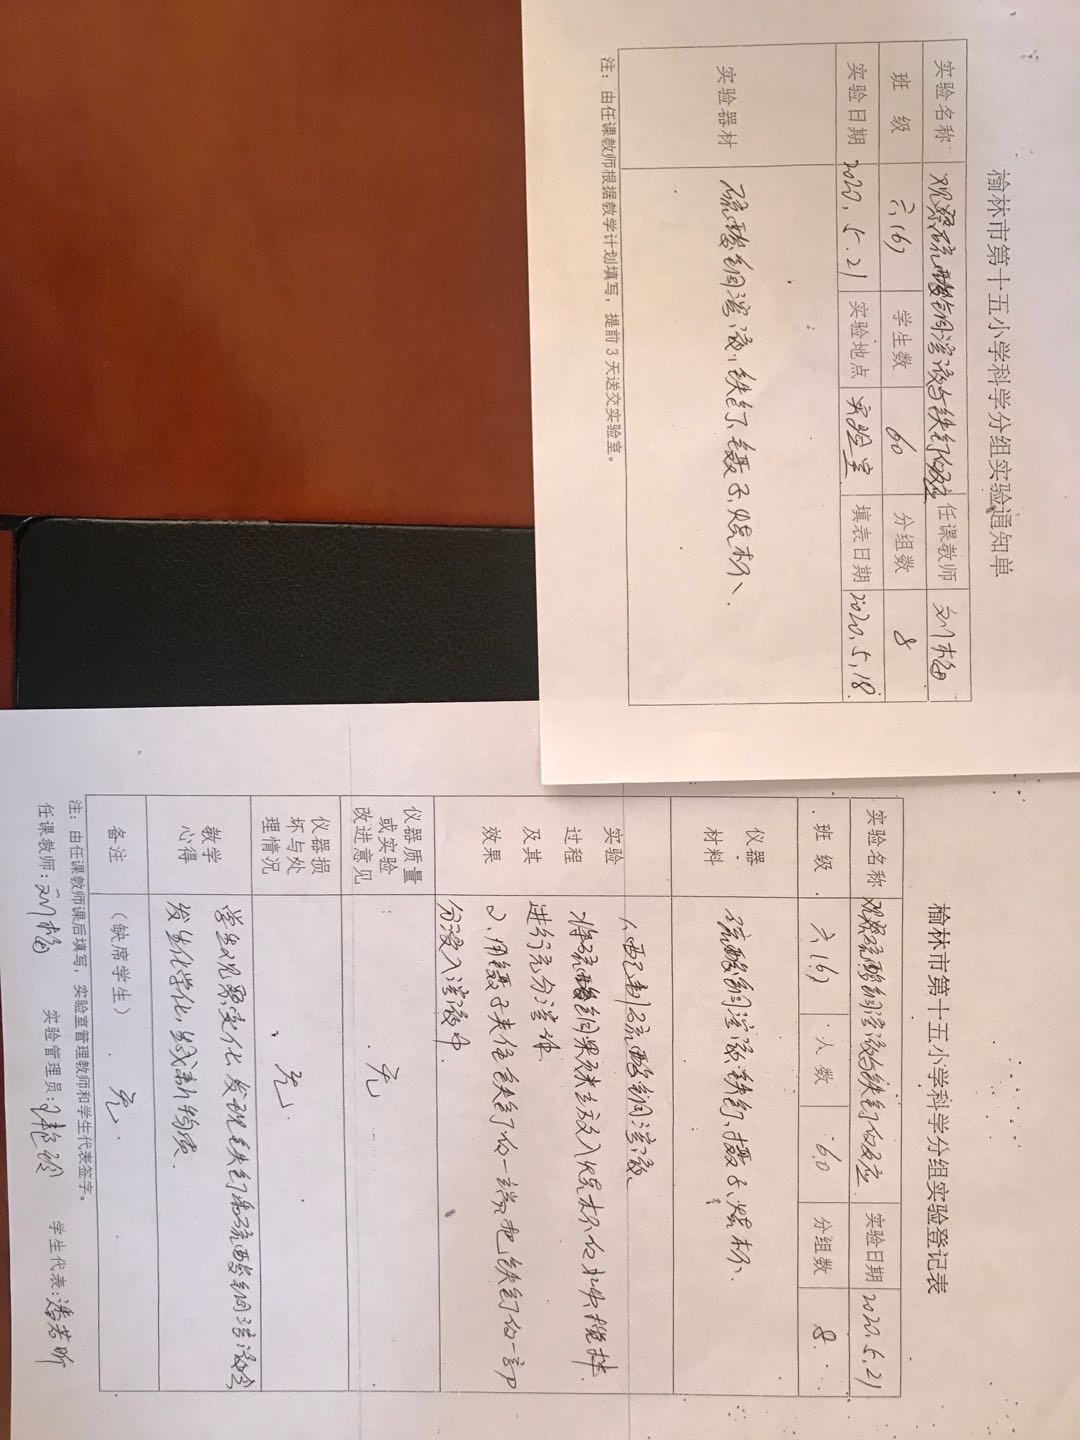 榆林市第十五小学科学分组实验通知单
实验名称 观察硫酸铜溶液与铁钉的反应 任课教师
班 级 六(6) 学生数 60 分组数 8
实验日期 2020.5.21 实验地点 实验室 填表日期 2020.5.18
实验器材 硫酸铜溶液、铁钉、镊子、烧杯、
注：由任课教师根据教学计划填写，提前3天送交实验室。
榆林市第十五小学科学分组实验登记表
实验名称 观察硫酸铜溶液与铁钉的反应 实验日期 2020.5.21
班 级 六(6) 人 数 60 分组数 8
仪器材料 硫酸铜溶液、铁钉、摄子、烧杯、
实验过程及其效果
1、配制硫酸铜溶液
将硫酸铜果颗粒放入烧杯的水中搅拌
进行充分溶解
2、用镊子夹住铁钉的一端把铁钉的一部
分浸入溶液中
仪器质量或实验改进意见 无
仪器损坏与处理情况 无
教学心得
学生观察变化、发现铁钉和硫酸铜溶液会
发生化学化，生成新物质
备注 （缺席学生） 无
注：由任课教师课后填写，实验室管理教师和学生代表签字。
任课教师： 实验管理员： 学生代表：